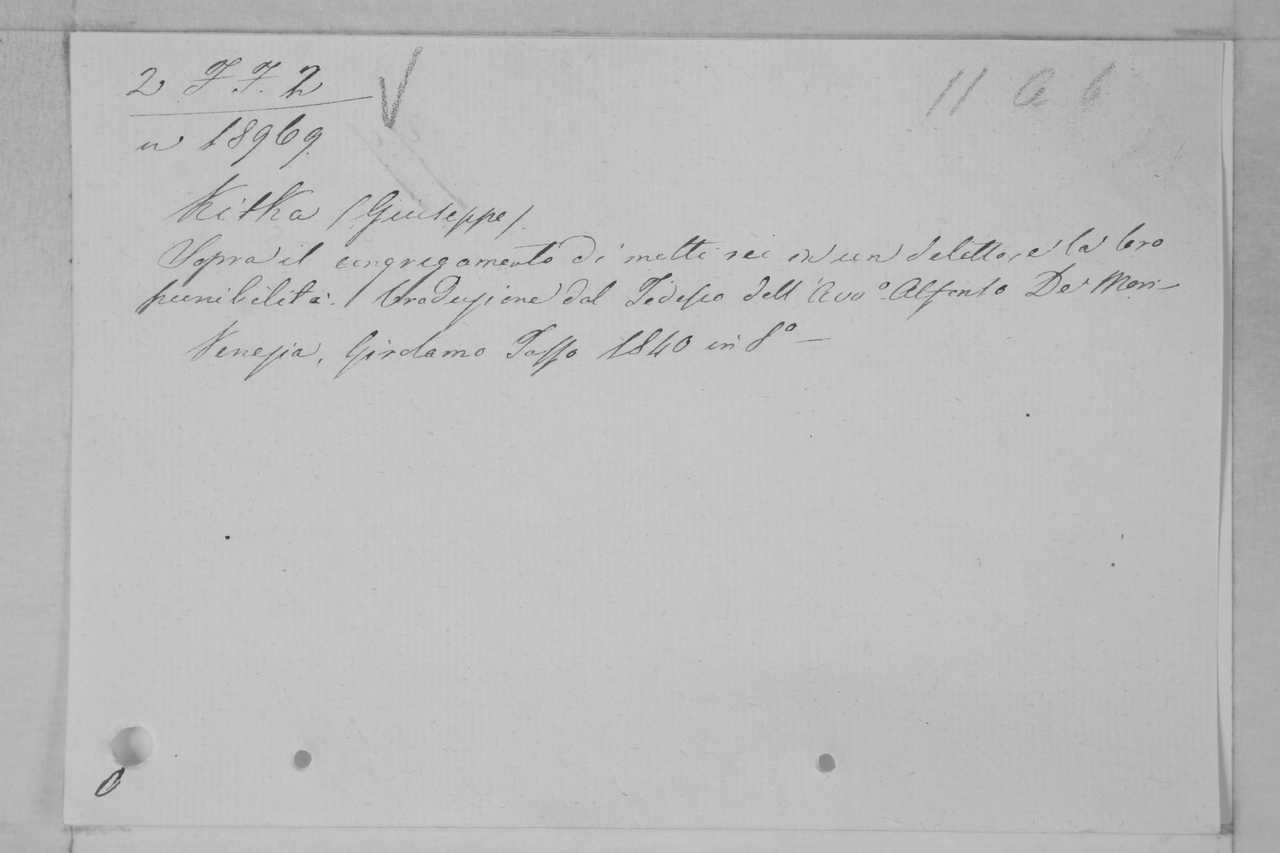 2 F. F. 2
11 a b
n 18969
Kitka (Giuseppe).
Sopra il congregamento di molti rei in un delitto, e la loro
punibilità. Traduzione dal Tedesco dell' Avv.º Alfonso De Mori-
Venezia, Girolamo Tasso 1840 in 8º -